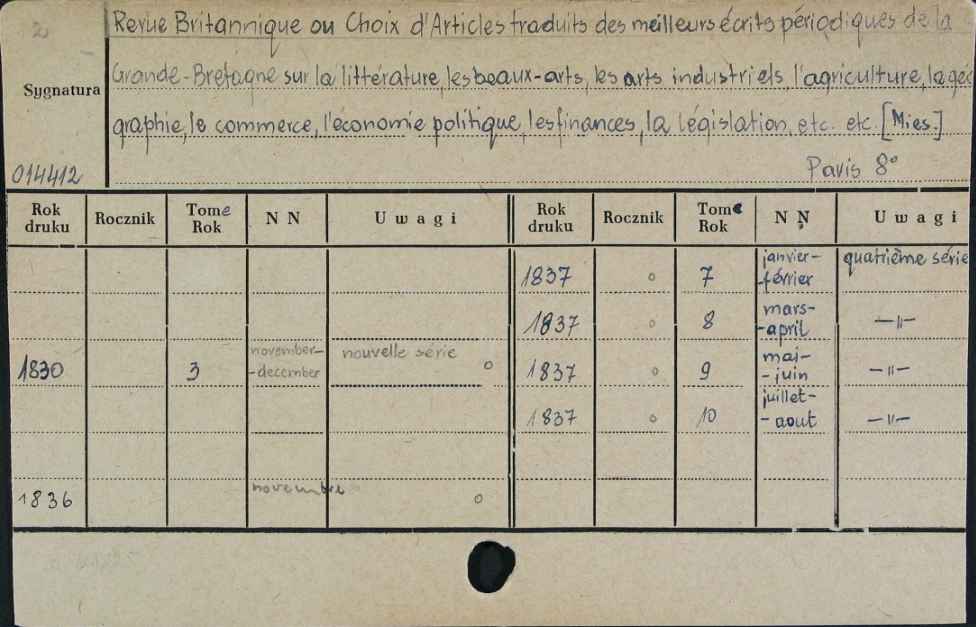 Revue Britannique ou Choix d'Articles traduits des meilleurs écrits périodiques de la
Grande-Bretagne sur la littérature, les beaux-arts, les arts industriels, l'agriculture, la géo
graphie, le commerce, l'économie politique, les finances, la législation, etc. etc. [Mies.]
Paris 8°
Sygnatura
014412
Rok druku Rocznik Tome Rok N N Uwagi Rok druku Rocznik Tome Rok N N Uwagi
1837 o 7 janvier-février quatrième série
1837 o 8 mars--april —"—
1830 3 november--december nouvelle série o 1837 o 9 mai--juin —"—
1837 o 10 juillet--aout —"—
1836 novembre o